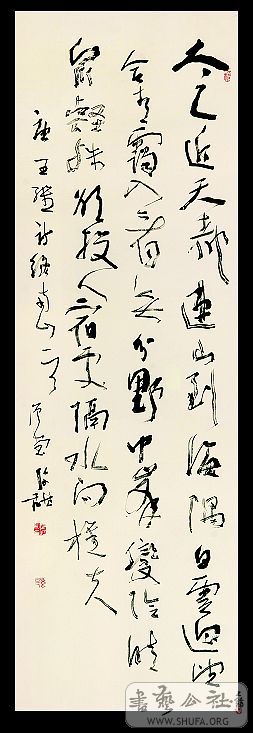 太乙近天都連山到海隅白雲迴望
合青靄入看無分野中峯變陰晴
衆壑殊欲投人宿處隔水問樵夫
唐王維詩終南山一首
書藝公社
WWW.SHUFA.ORG